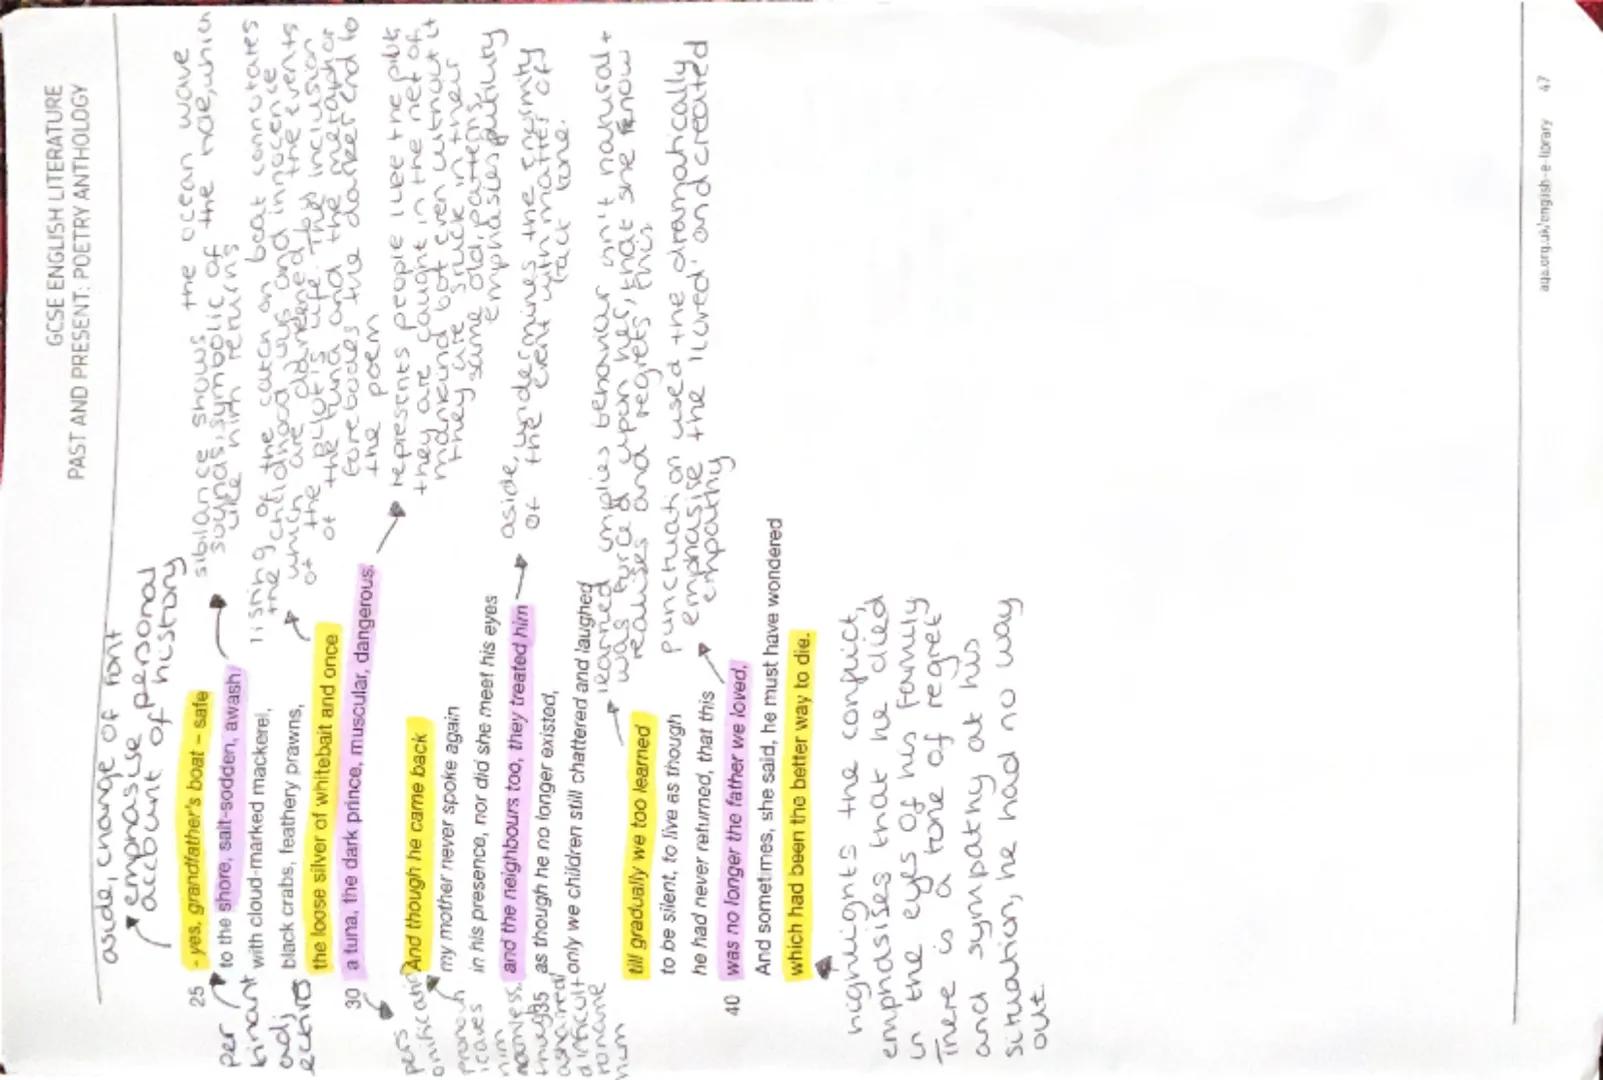 GCSE ENGLISH LITERATURE
PAST AND PRESENT: POETRY ANTHOLOGY
aside, change of font
emphasise personal
account of history
25 - yes, grandfather's boat – safe
to the shore, salt-sodden, awash
with cloud-marked mackerel,
black crabs, feathery prawns,
the loose silver of whitebait and once
30 a tuna, the dark prince, muscular, dangerous.
And though he came back
my mother never spoke again
in his presence, nor did she meet his eyes
and the neighbours too, they treated him
35 as though he no longer existed,
only we children still chattered and laughed
till gradually we too learned
to be silent, to live as though
he had never returned, that this
40 was no longer the father we loved.
And sometimes, she said, he must have wondered
which had been the better way to die.
sibilance shows the ocean wave
sounds, symbolic of the route, which
like him returns
listing of the catch on boat connotates
the childhood joys and innocence
which are darkened by the events
of the pilot's life. The inclusion
of the tuna and the metaphor
forebodes the darker end to
the poem
represents people like the pilot
they are caught in the net of
mankind but even without it
they are stuck in their
same old patterns,
emphasises futility
aside, undermines the enormity
of the event with matter of
fact tone.
learned implies behaviour isn't natural +
was forced upon her, that she know
realises and regrets this
punctuation used the dramatically
emphasise the 'loved' and created
empathy
per
adj
pers
onification
pronoun
him
nameless
difficult
him
highlights the conflict,
emphasises that he died
in the eyes of his family
There is a tone of regret
and sympathy at his
situation, he had no way
out.
aqa.org.uk/english-e-library 47